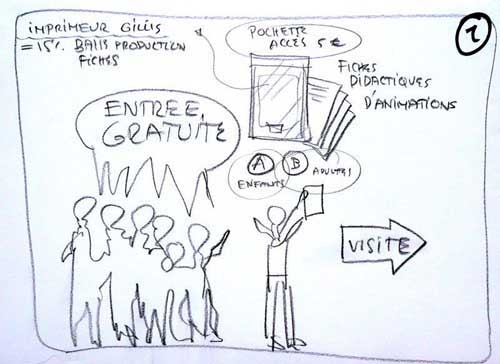 IMPRIMEUR GILLIS
= 15%. BALIS PRODUCTION
FICHES
POCHETTE
ACCÈS 5 €
1
FICHES
DIDACTIQUES
D'ANIMATIONS
ENTREE
GRATUITE
A
ENFANTS
B
ADULTES
VISITE